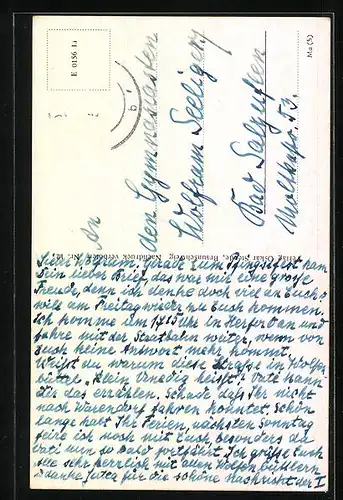 E 0156 Li
Ma (5)
An
den Gymnasiasten
Wolfram Seeliger
Bad Salzuflen
Moltkestr. 53.
Verlag Oskar Braunschweig Nachdruck verboten Nr. 12
Lieber Wolfram. Gerade zum Pfingstfest kam
Dein lieber Brief, das war mir eine große
Freude, denn ich denke doch viel an Euch u
will am Freitag wieder zu Euch kommen.
Ich komme um 17.15 Uhr in Herford an und
fahre mit der Staatbahn weiter, wenn von
Euch keine Antwort mehr kommt.
Weißt du warum diese Straße in Wolfen
büttel "Klein Venedig heißt? Vati kann
Dir das erzählen. Schade daß Ihr nicht
nach Warendorf fahren konntet. Schön
lange habt Ihr Ferien, nächsten Sonntag
feire ich noch mit Euch, besonders da
Vati nun so bald fortfährt. Ich grüße Euch
alle sehr herzlich mit allen Wolfenbüttlern
danke Jutta für die schöne Nachricht der I